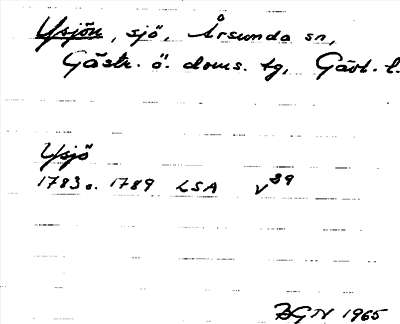 Ysjön, sjö, Årsunda sn,
Gästr. ö. doms. tg, Gävl. l.
Ysjö
1783 o. 1789 LSA V39
BGN 1965